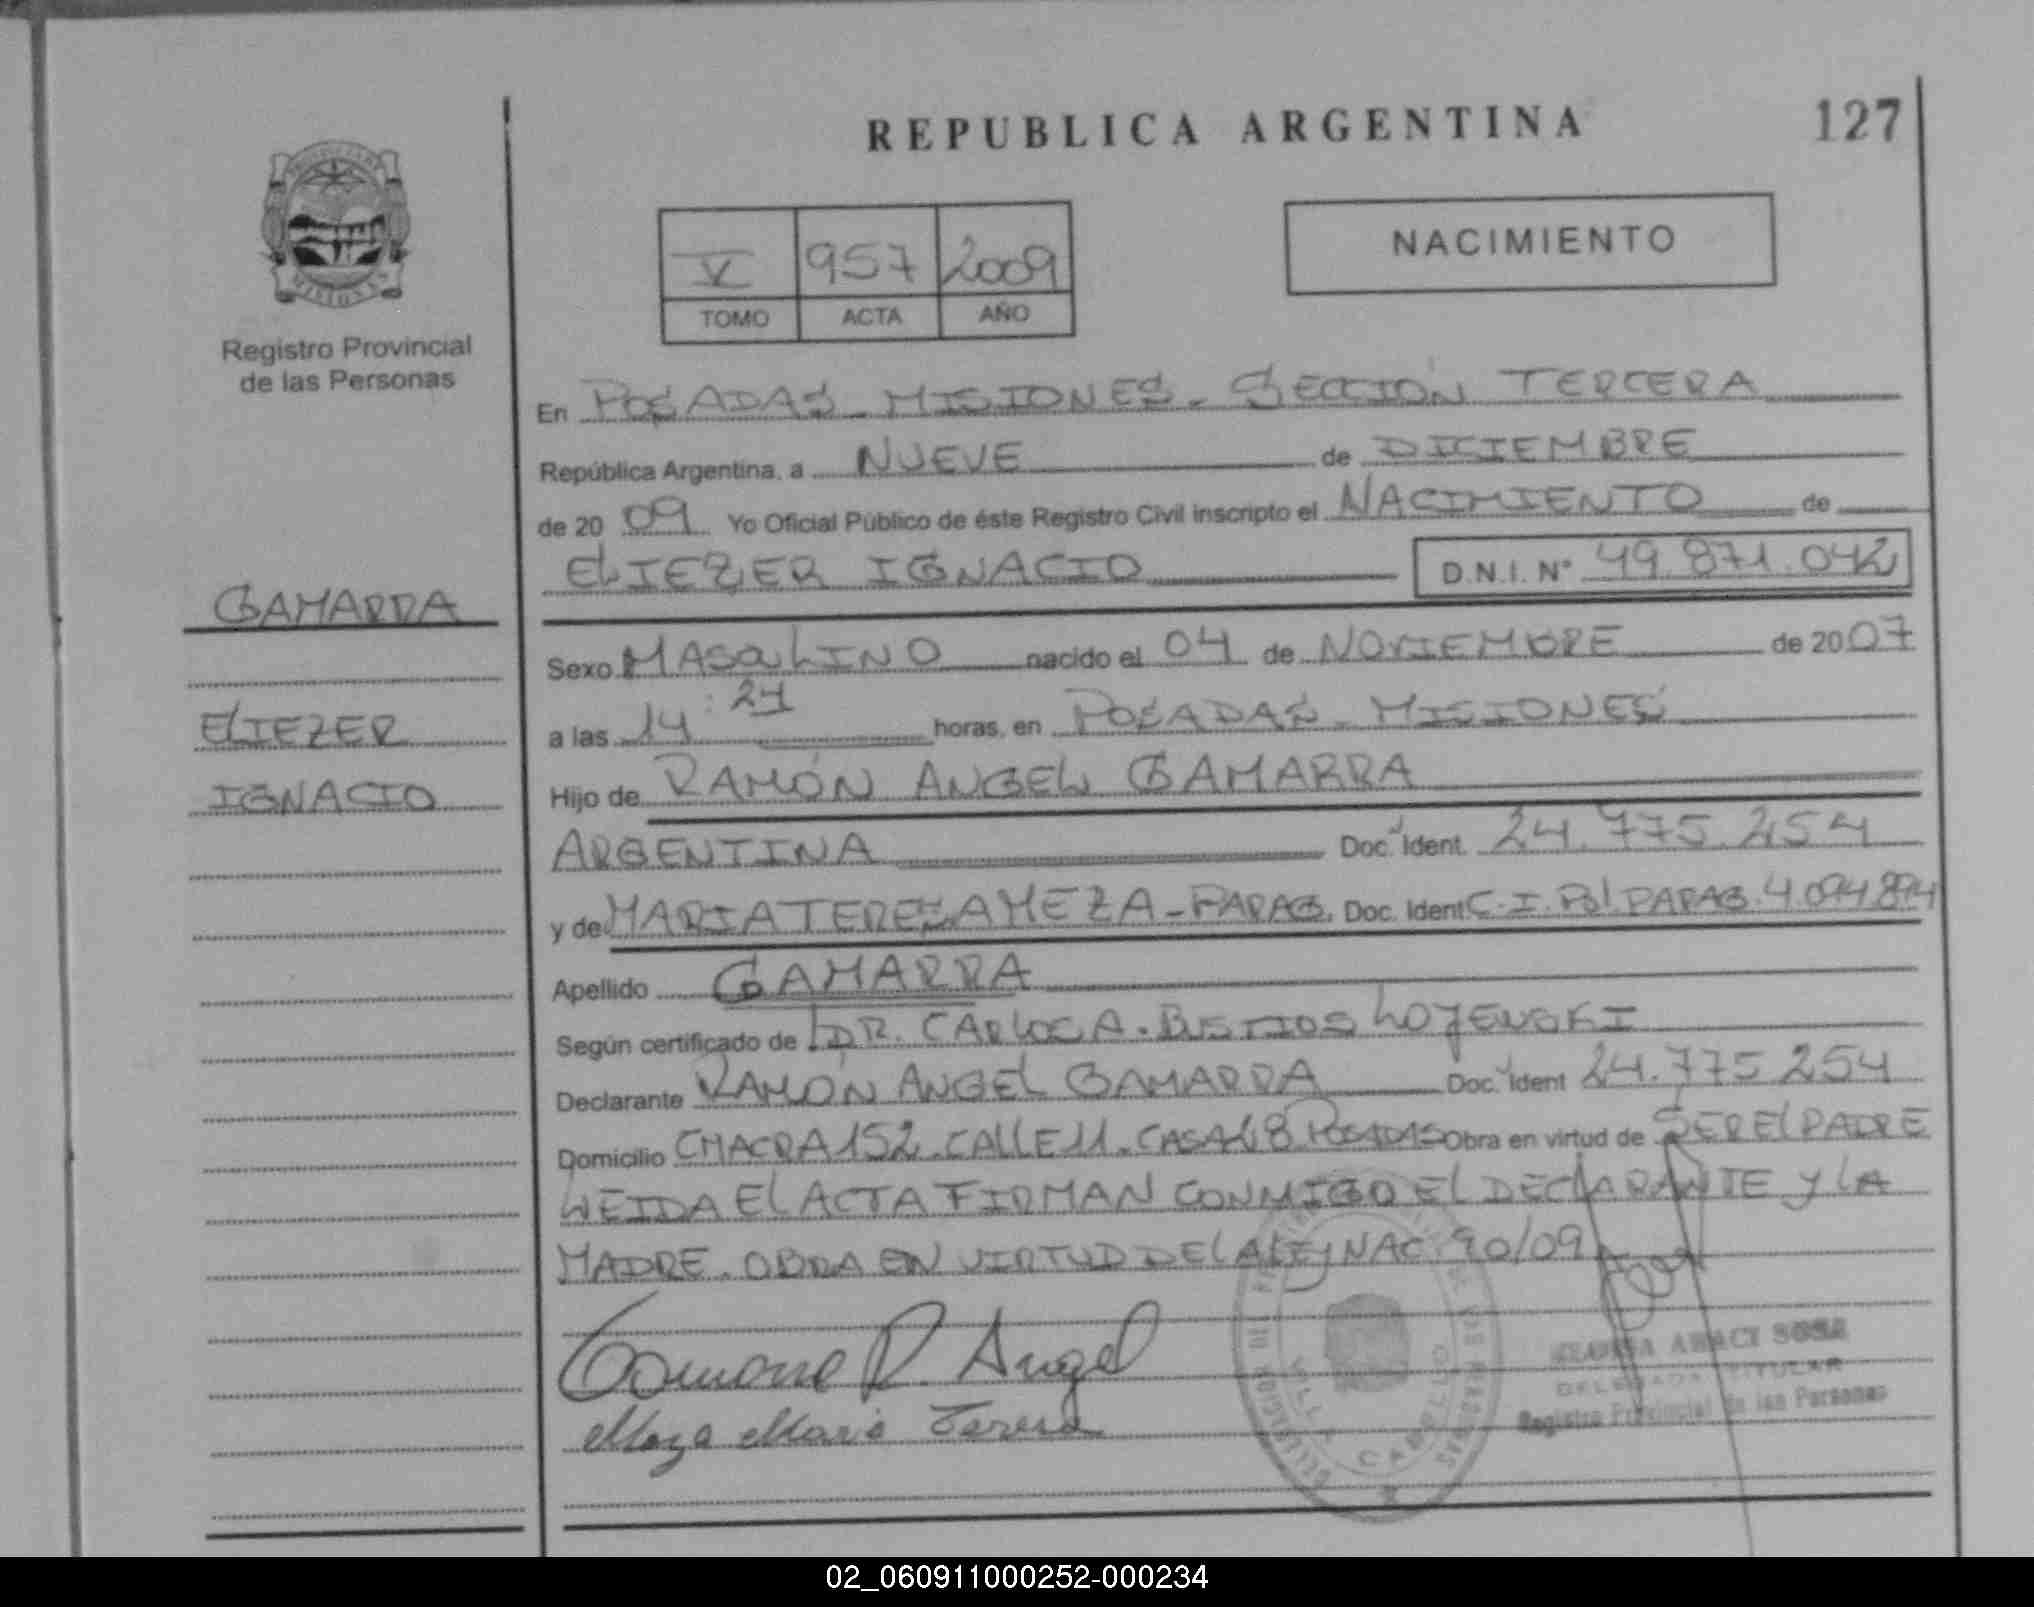 REPUBLICA ARGENTINA
127
V 957 2009
TOMO ACTA AÑO
NACIMIENTO
MISIONES
Registro Provincial
de las Personas
En POSADAS - MISIONES - SECCIÓN TERCERA
República Argentina, a NUEVE de DICIEMBRE
de 2009 Yo Oficial Público de éste Registro Civil inscripto el NACIMIENTO de
ELIEZER IGNACIO D.N.I. Nº 49.871.042
GAMARRA
ELIEZER
IGNACIO
Sexo MASCULINO nacido el 04 de NOVIEMBRE de 2007
a las 14:21 horas, en POSADAS - MISIONES
Hijo de RAMÓN ANGEL GAMARRA
ARGENTINA Doc. Ident. 24.775.254
y de MARIA TEREZA MEZA - PARAG. Doc. Ident C.I. Pol. PARAG. 4.094.894
Apellido GAMARRA
Según certificado de DR. CARLOS A. BUSTIOS LOJENSKI
Declarante RAMÓN ANGEL GAMARRA Doc. Ident 24.775.254
Domicilio CHACRA 152 - CALLE 11 - CASA 18 POSADAS Obra en virtud de SER EL PADRE
LEIDA EL ACTA FIRMAN CONMIGO EL DECLARANTE Y LA
MADRE. OBRA EN VIRTUD DE LA LEY NAC. 90/09
Gamarra R. Angel
Meza Maria Teresa
ARACI SOSA
DELEGADA TITULAR
Registro Provincial de las Personas
VILLA CABELLO
02_060911000252-000234